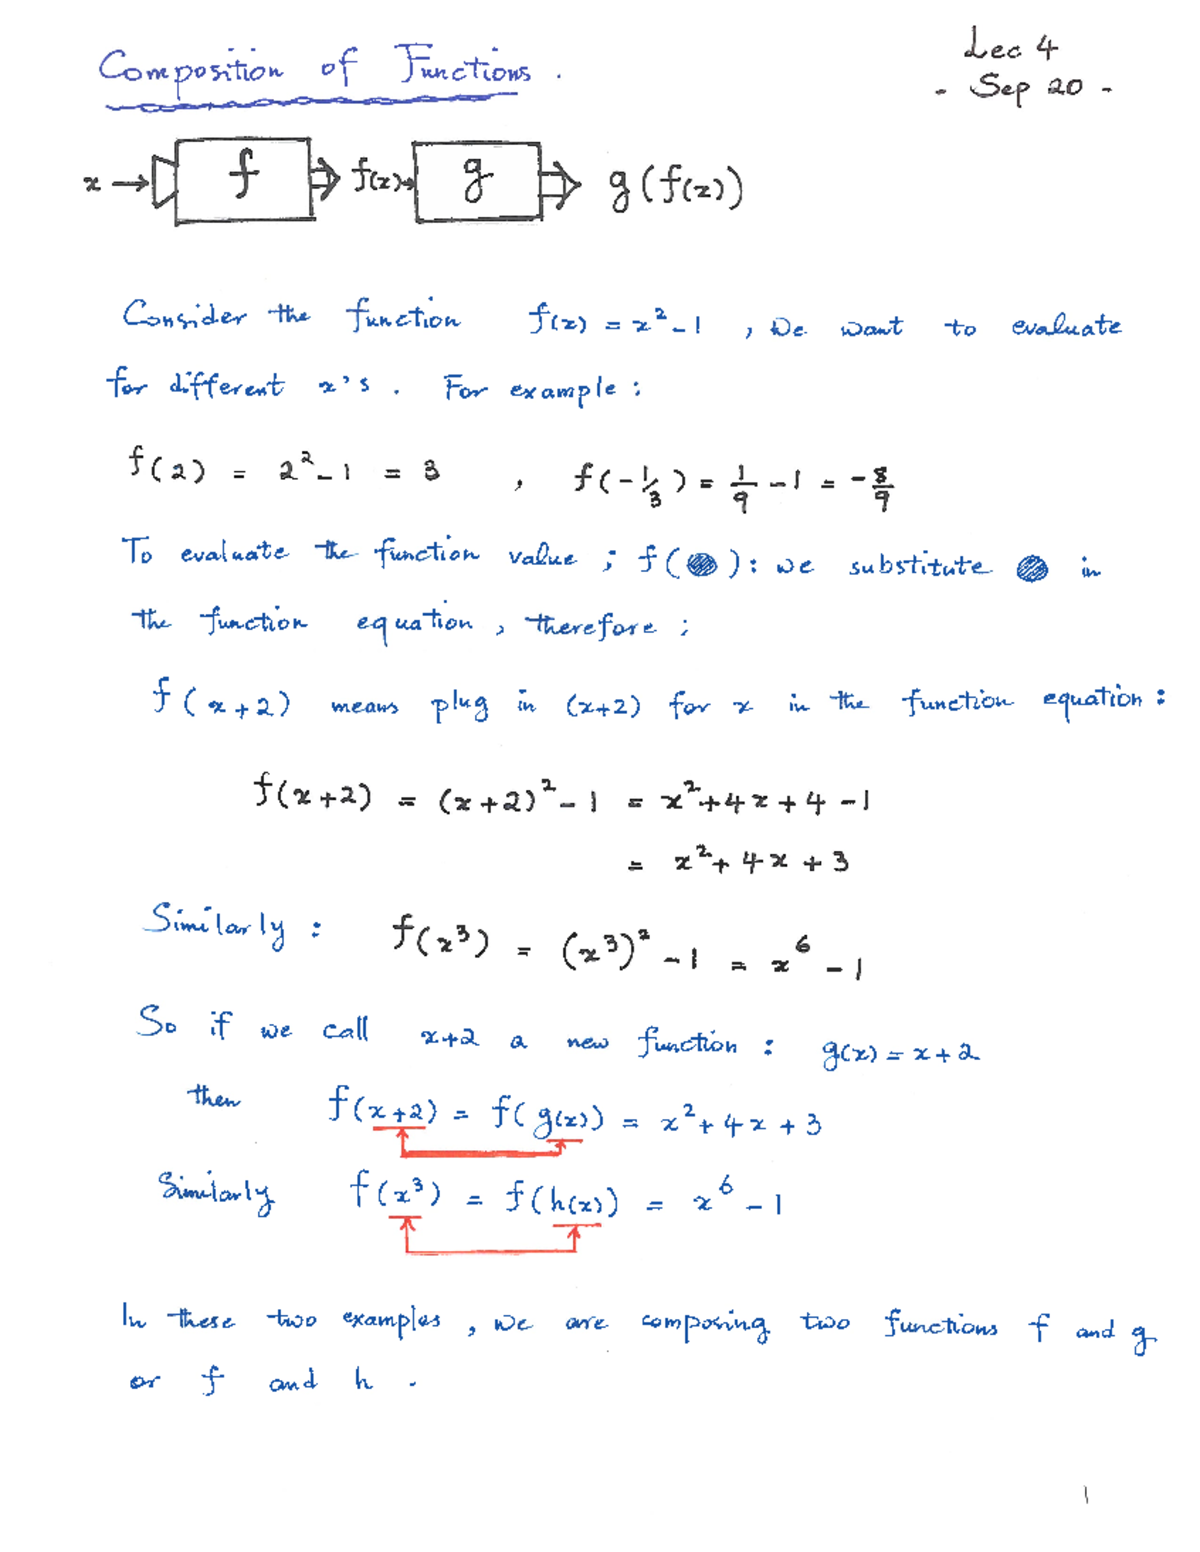 Composition of Functions.
Lec 4
- Sep 20 -
x → f ⇒ f(x) → g ⇒ g(f(x))
Consider the function f(x) = x² - 1 , we want to evaluate
for different x's. For example :
f(2) = 2² - 1 = 3 , f(-1/3) = 1/9 - 1 = -8/9
To evaluate the function value ; f( ) : we substitute in
the function equation, therefore ;
f(x+2) means plug in (x+2) for x in the function equation :
f(x+2) = (x+2)² - 1 = x² + 4x + 4 - 1
= x² + 4x + 3
Similarly : f(x³) = (x³)² - 1 = x⁶ - 1
So if we call x+2 a new function : g(x) = x + 2
then f(x+2) = f(g(x)) = x² + 4x + 3
Similarly f(x³) = f(h(x)) = x⁶ - 1
In these two examples, we are composing two functions f and g
or f and h .
1